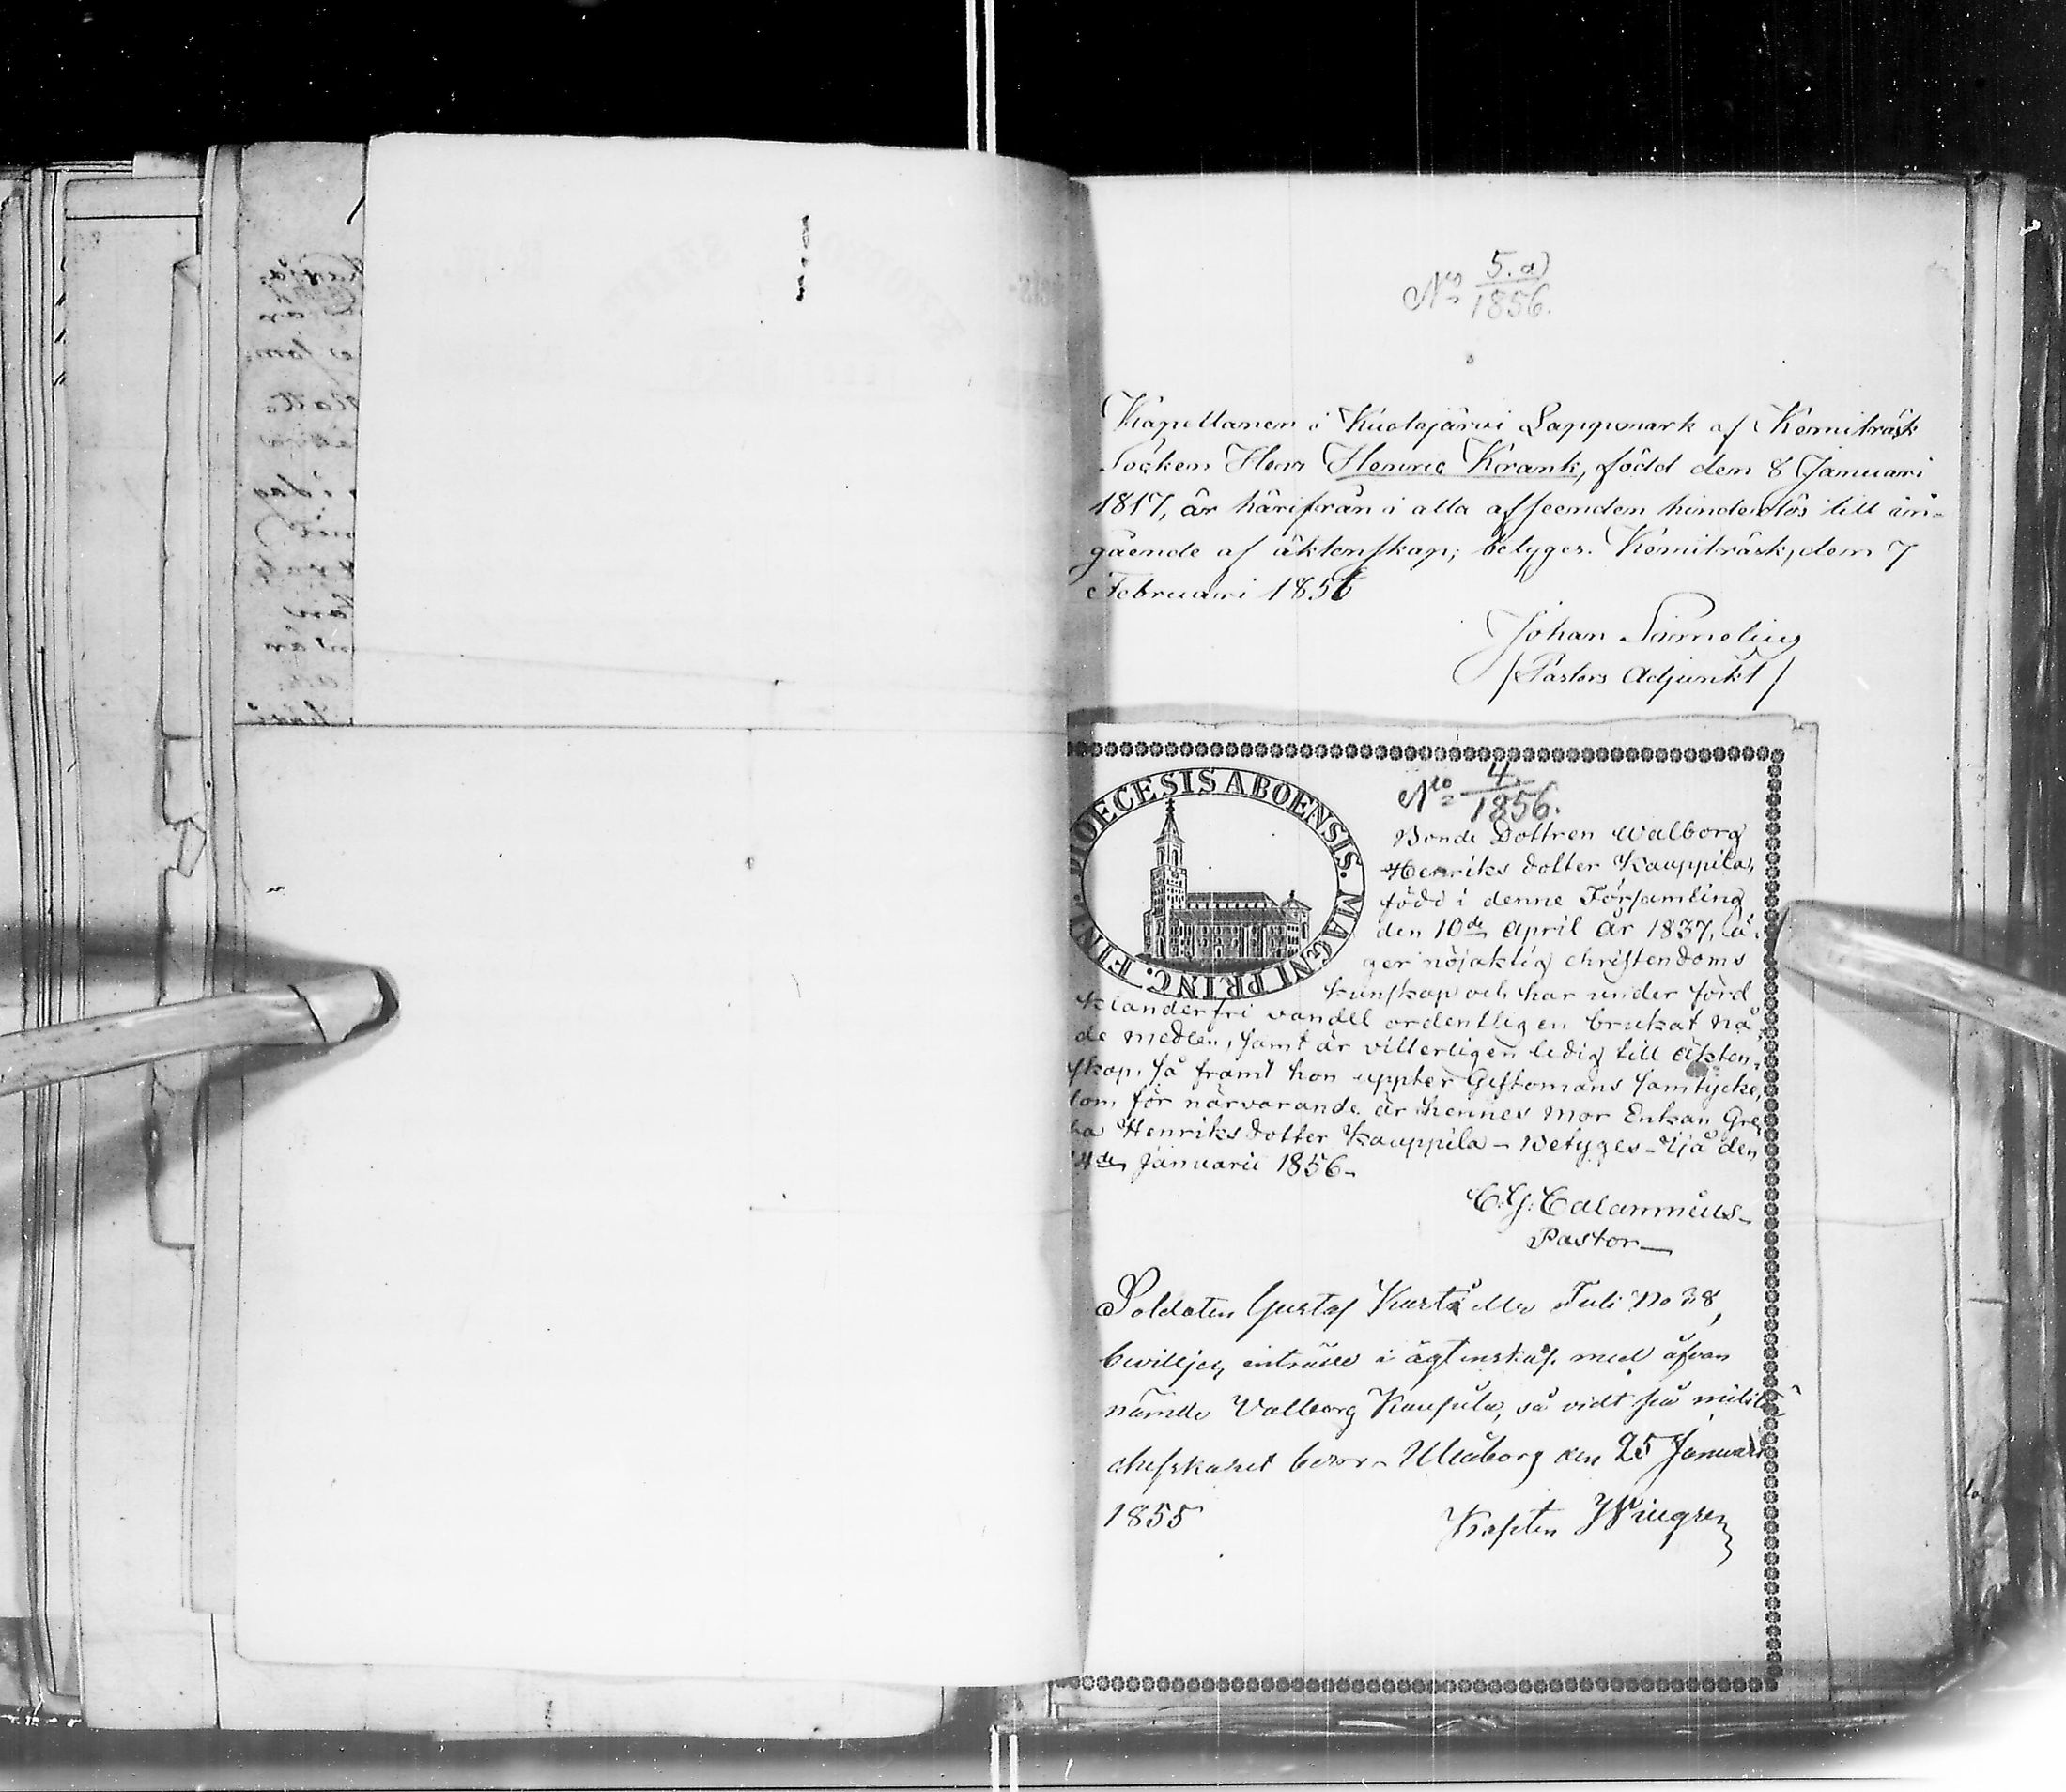 No 5.a)
1856.
Kapellanen i Kuolajärvi Lappmark af Kemiträsk
Socken Herr Henric Krank, född den 8 Januari
1817, är härifrån i alla afseenden hinderslös till in-
gående af äktenskap; betyges. Kemiträsk, dem 7
Februari 1856
Johan
/Pastors Adjunkt/
DIOECESIS ABOENSIS. MAGNI PRINC. FINL.
No 4.
1856.
Bonde Dottren Walborg
Henriks dotter Kauppila,
född i denne Församling
den 10de April år 1837, ä-
ger nöjaktig christendoms
kunskap och har under förd
klanderfri vandel ordentligen brukat nå
de medlen, samt är vitterligen ledig till äkten-
skap, så framt hon uppter Giftomans samtycke,
som för närvarande är hennes mor Enkan Gre
ta Henriks dotter Kauppila – Betyges – Ijå den
4de Januarii 1856 –
C. G. Calamnius –
Pastor –
Soldaten Gustaf No 38,
beviljes inträde i ägtenskap med ofvan
nämde Valborg Kaupila, så vidt på militär
chefskapet beror – Uleåborg den 25 Januari
1855
Kapten